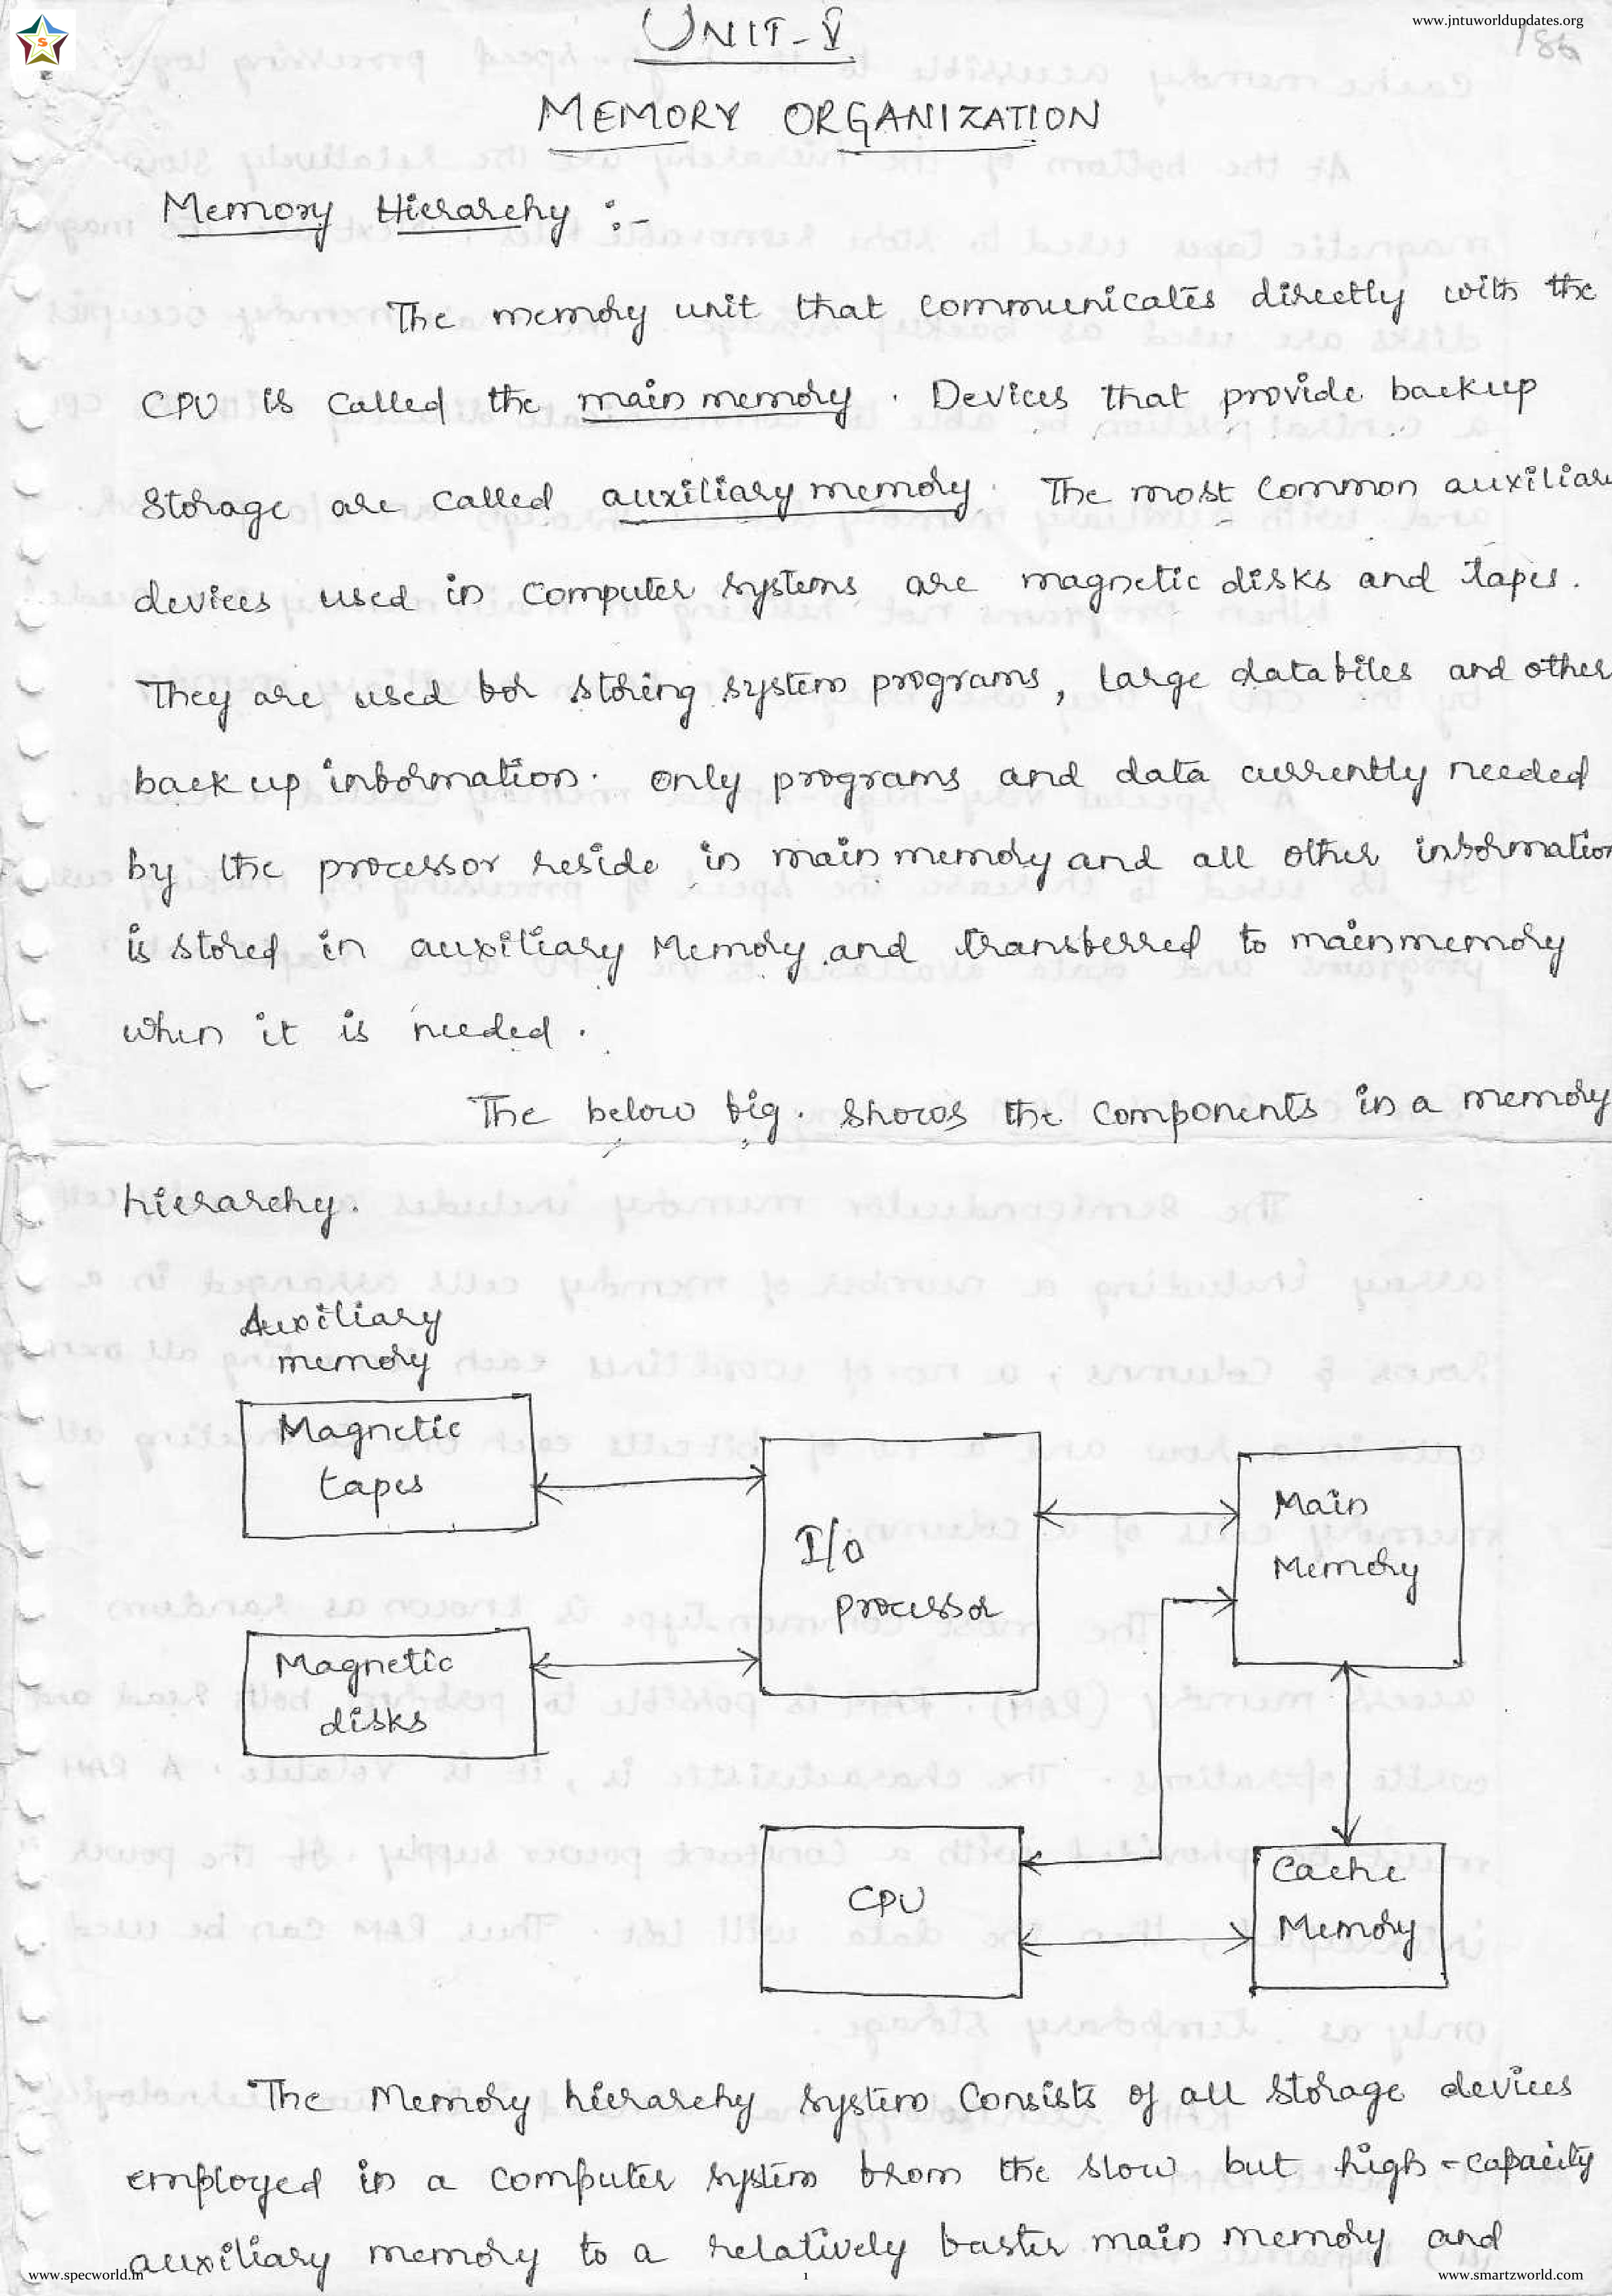 www.jntuworldupdates.org
S
UNIT-V
MEMORY ORGANIZATION
Memory Hierarchy :-
The memory unit that communicates directly with the
CPU is called the main memory. Devices that provide backup
Storage are called auxiliary memory. The most common auxiliary
devices used in computer systems are magnetic disks and tapes.
They are used for storing system programs, large data files and other
back up information. only programs and data currently needed
by the processor reside in main memory and all other information
is stored in auxiliary Memory and transferred to main memory
when it is needed.
The below fig. shows the components in a memory
hierarchy.
Auxiliary
memory
Magnetic
tapes
I/O
processor
Main
Memory
Magnetic
disks
CPU
Cache
Memory
The Memory hierarchy system consists of all storage devices
employed in a computer system from the slow but high-capacity
auxiliary memory to a relatively faster main memory and
www.specworld.in
1
www.smartzworld.com